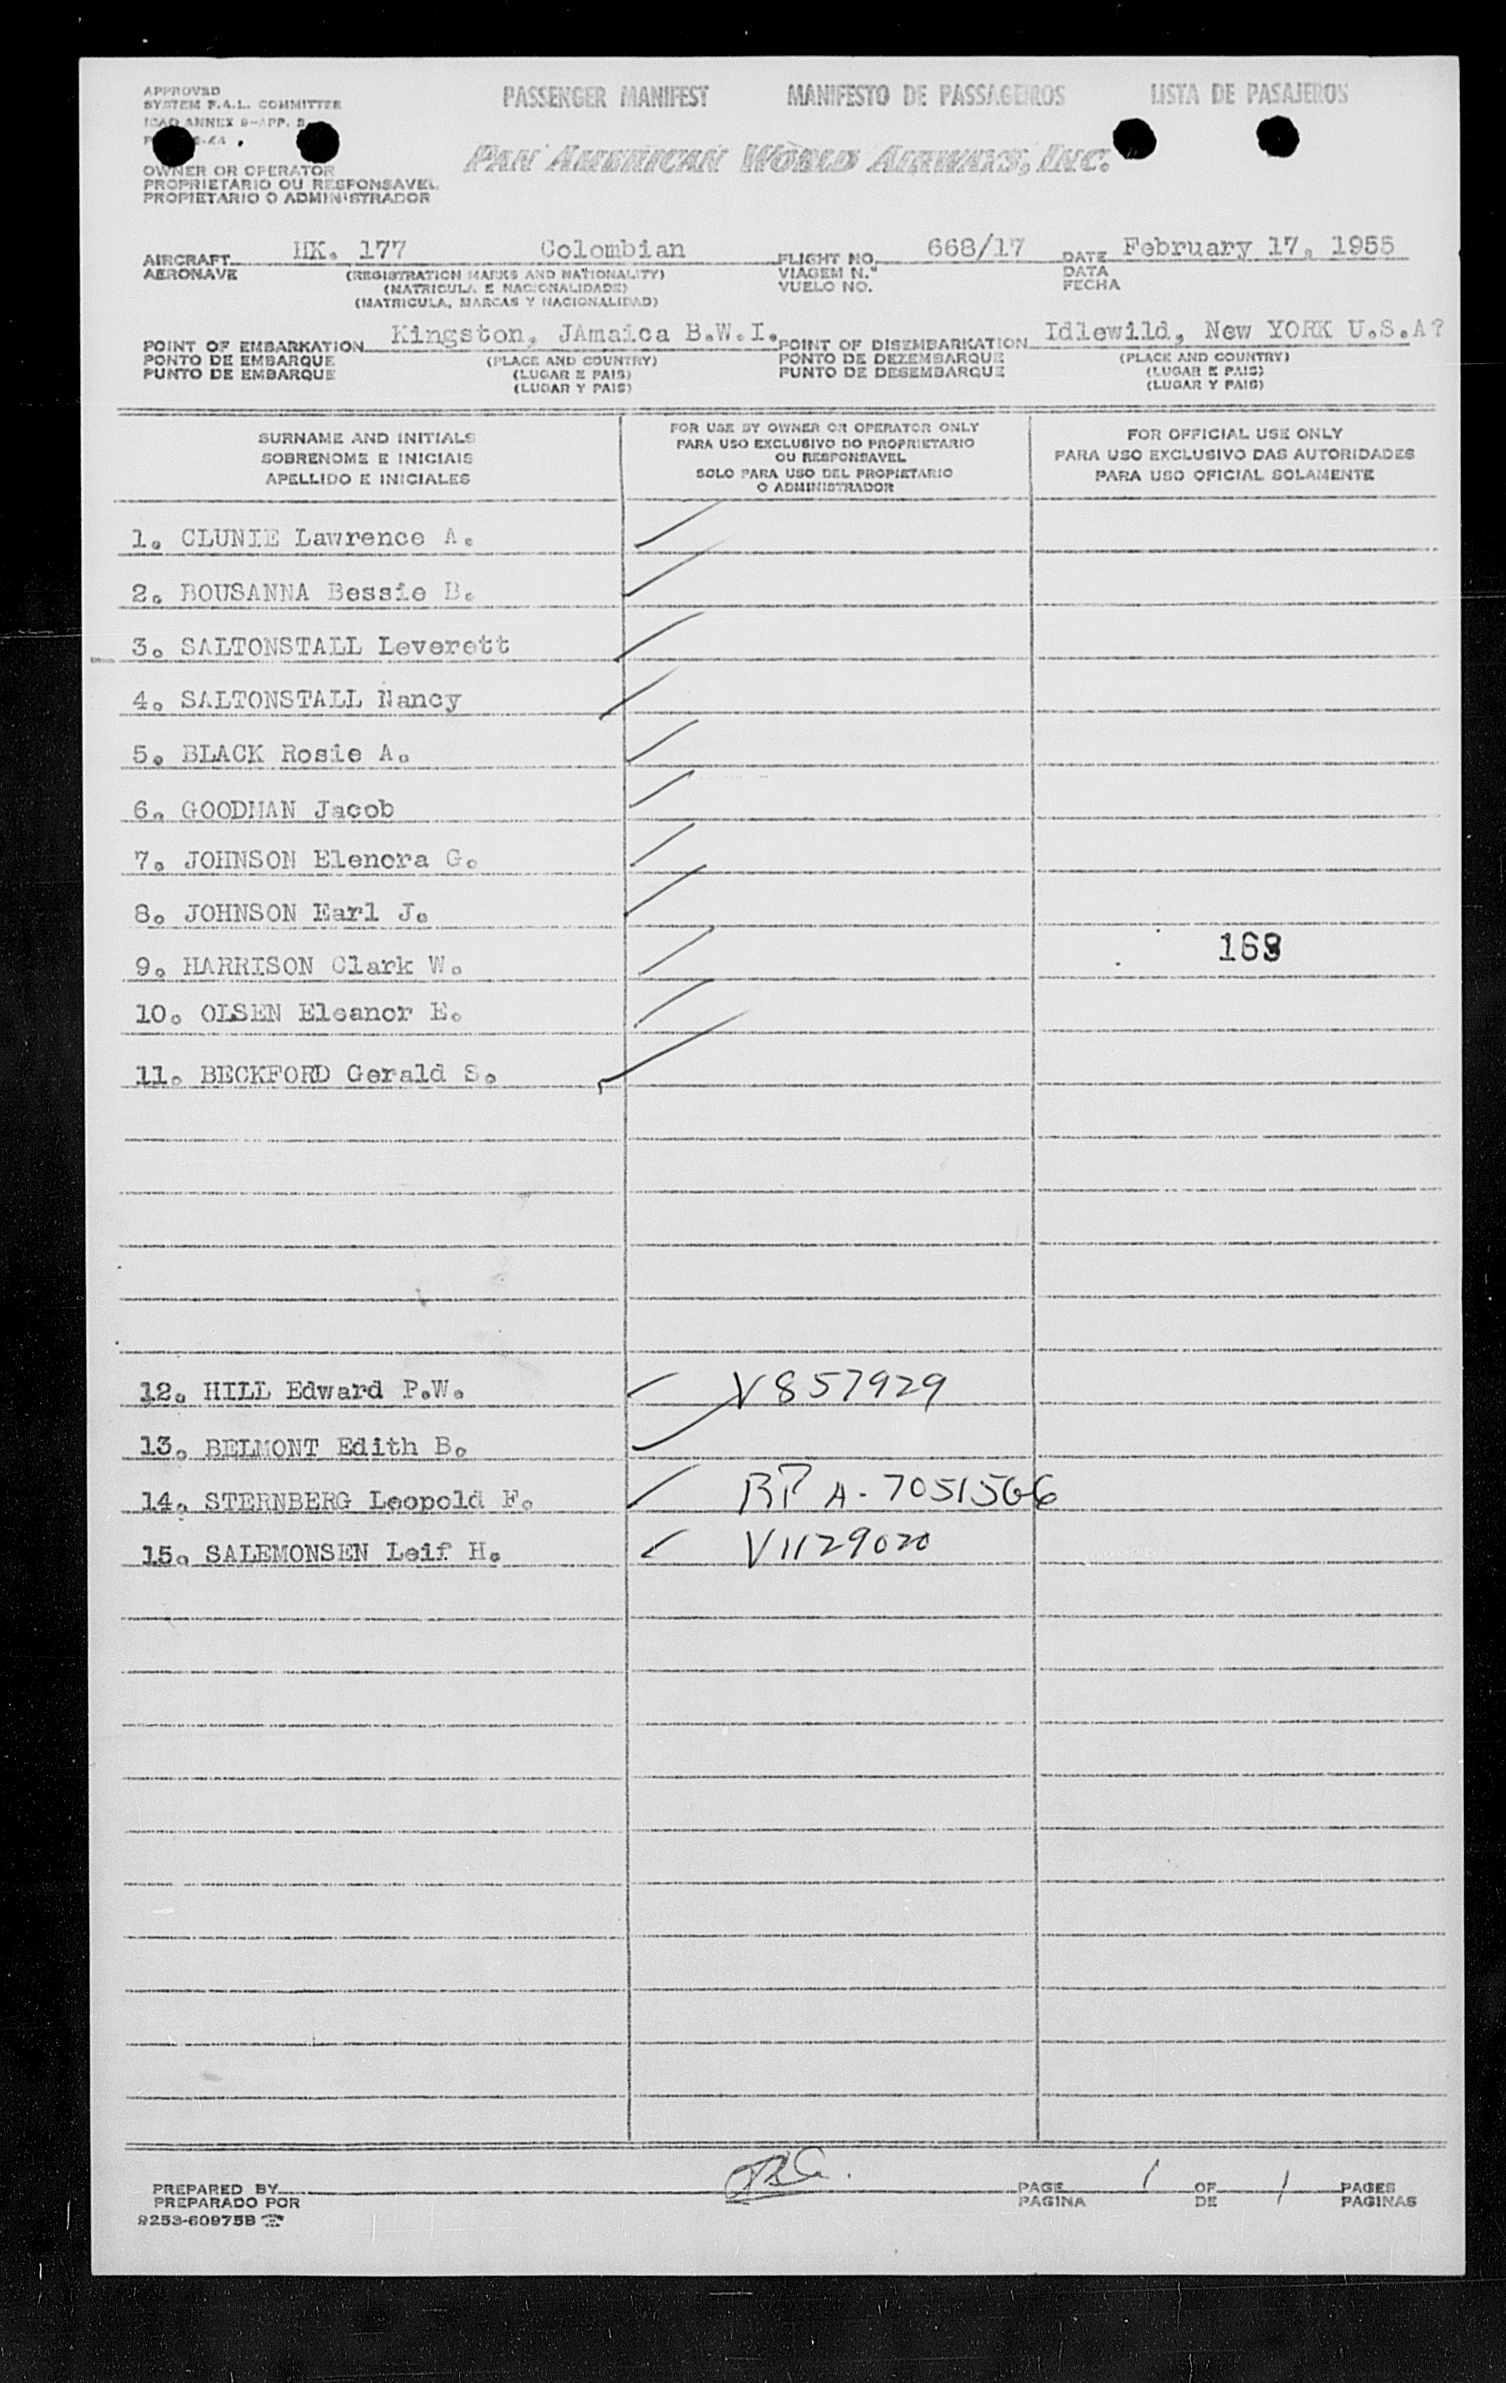 APPROVED
SYSTEM F.A.L. COMMITTEE
ICAO ANNEX 9-APP. 3
PASSENGER MANIFEST MANIFESTO DE PASSAGEIROS LISTA DE PASAJEROS
PAN AMERICAN WORLD AIRWAYS, INC.
OWNER OR OPERATOR
PROPRIETARIO OU RESPONSAVEL
PROPIETARIO O ADMINISTRADOR
AIRCRAFT HK. 177 Colombian FLIGHT NO. 668/17 DATE February 17, 1955
AERONAVE (REGISTRATION MARKS AND NATIONALITY) VIAGEM N.º DATA
(MATRICULA E NACIONALIDADE) VUELO NO. FECHA
(MATRICULA, MARCAS Y NACIONALIDAD)
POINT OF EMBARKATION Kingston, JAmaica B.W.I. POINT OF DISEMBARKATION Idlewild, New YORK U.S.A?
PONTO DE EMBARQUE (PLACE AND COUNTRY) PONTO DE DEZEMBARQUE (PLACE AND COUNTRY)
PUNTO DE EMBARQUE (LUGAR E PAIS) PUNTO DE DESEMBARQUE (LUGAR E PAIS)
(LUGAR Y PAIS) (LUGAR Y PAIS)
SURNAME AND INITIALS
SOBRENOME E INICIAIS
APELLIDO E INICIALES
FOR USE BY OWNER OR OPERATOR ONLY
PARA USO EXCLUSIVO DO PROPRIETARIO
OU RESPONSAVEL
SOLO PARA USO DEL PROPIETARIO
O ADMINISTRADOR
FOR OFFICIAL USE ONLY
PARA USO EXCLUSIVO DAS AUTORIDADES
PARA USO OFICIAL SOLAMENTE
1. CLUNIE Lawrence A.
2. BOUSANNA Bessie B.
3. SALTONSTALL Leverett
4. SALTONSTALL Nancy
5. BLACK Rosie A.
6. GOODMAN Jacob
7. JOHNSON Elenora G.
8. JOHNSON Earl J.
9. HARRISON Clark W.
10. OLSEN Eleanor E.
11. BECKFORD Gerald S.
12. HILL Edward P.W. V857929
13. BELMONT Edith B.
14. STERNBERG Leopold F. RP A-7051566
15. SALEMONSEN Leif H. V1129020
PREPARED BY PAGE 1 OF 1 PAGES
PREPARADO POR PAGINA DE PAGINAS
9253-60975B